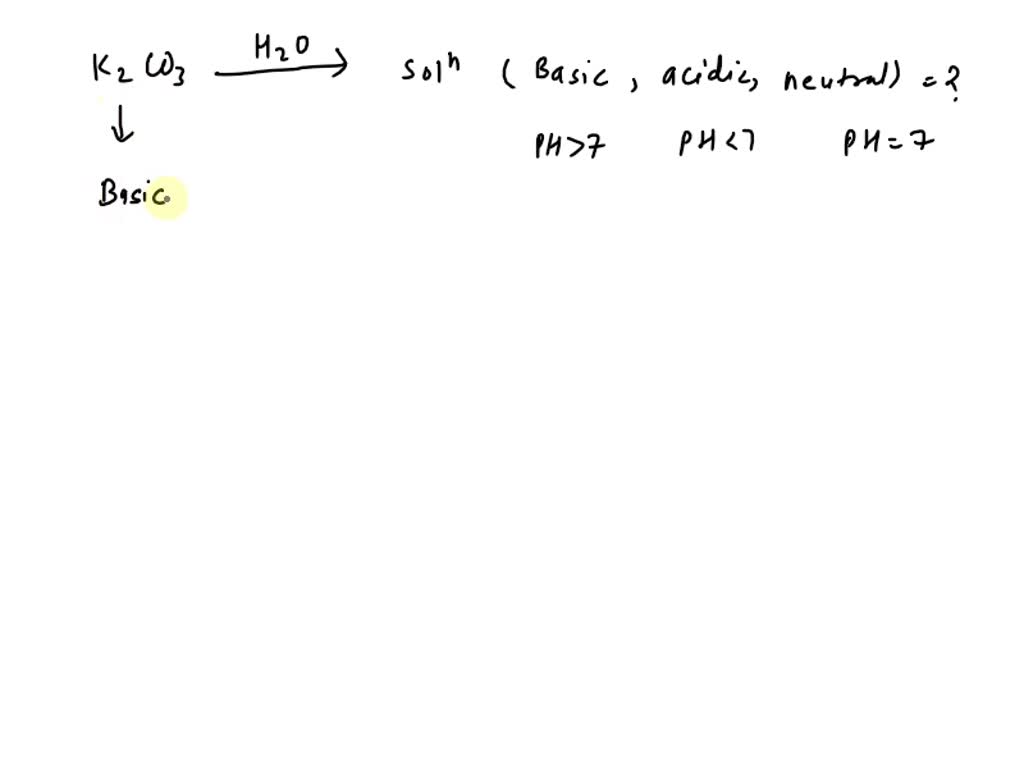 K₂CO₃ —H₂O→ Solⁿ (Basic, acidic, neutral) = ?
PH>7 PH<7 PH=7
↓
Basic